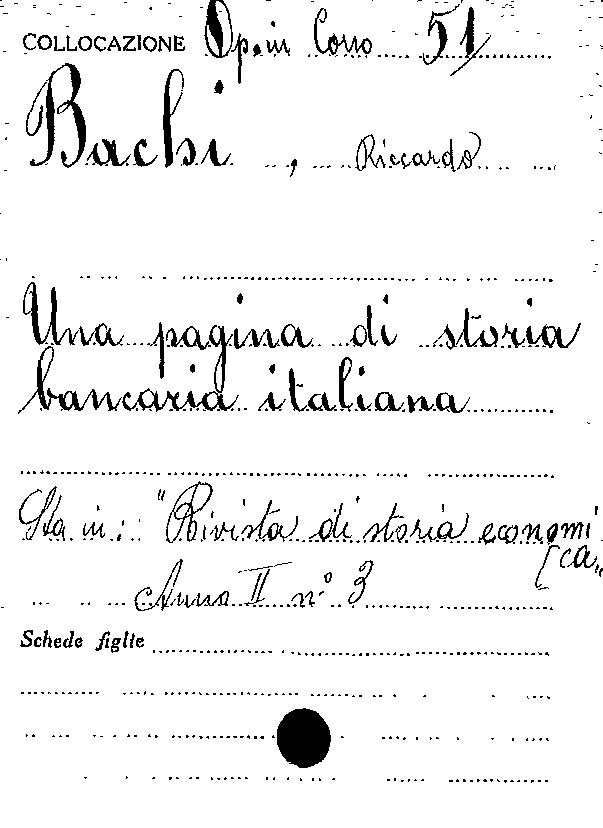 COLLOCAZIONE Op. in Corso 51/
Bachi, Riccardo
Una pagina di storia
bancaria italiana
Sta in: "Rivista di storia economi
[ca„
Anno II n° 3
Schede figlie